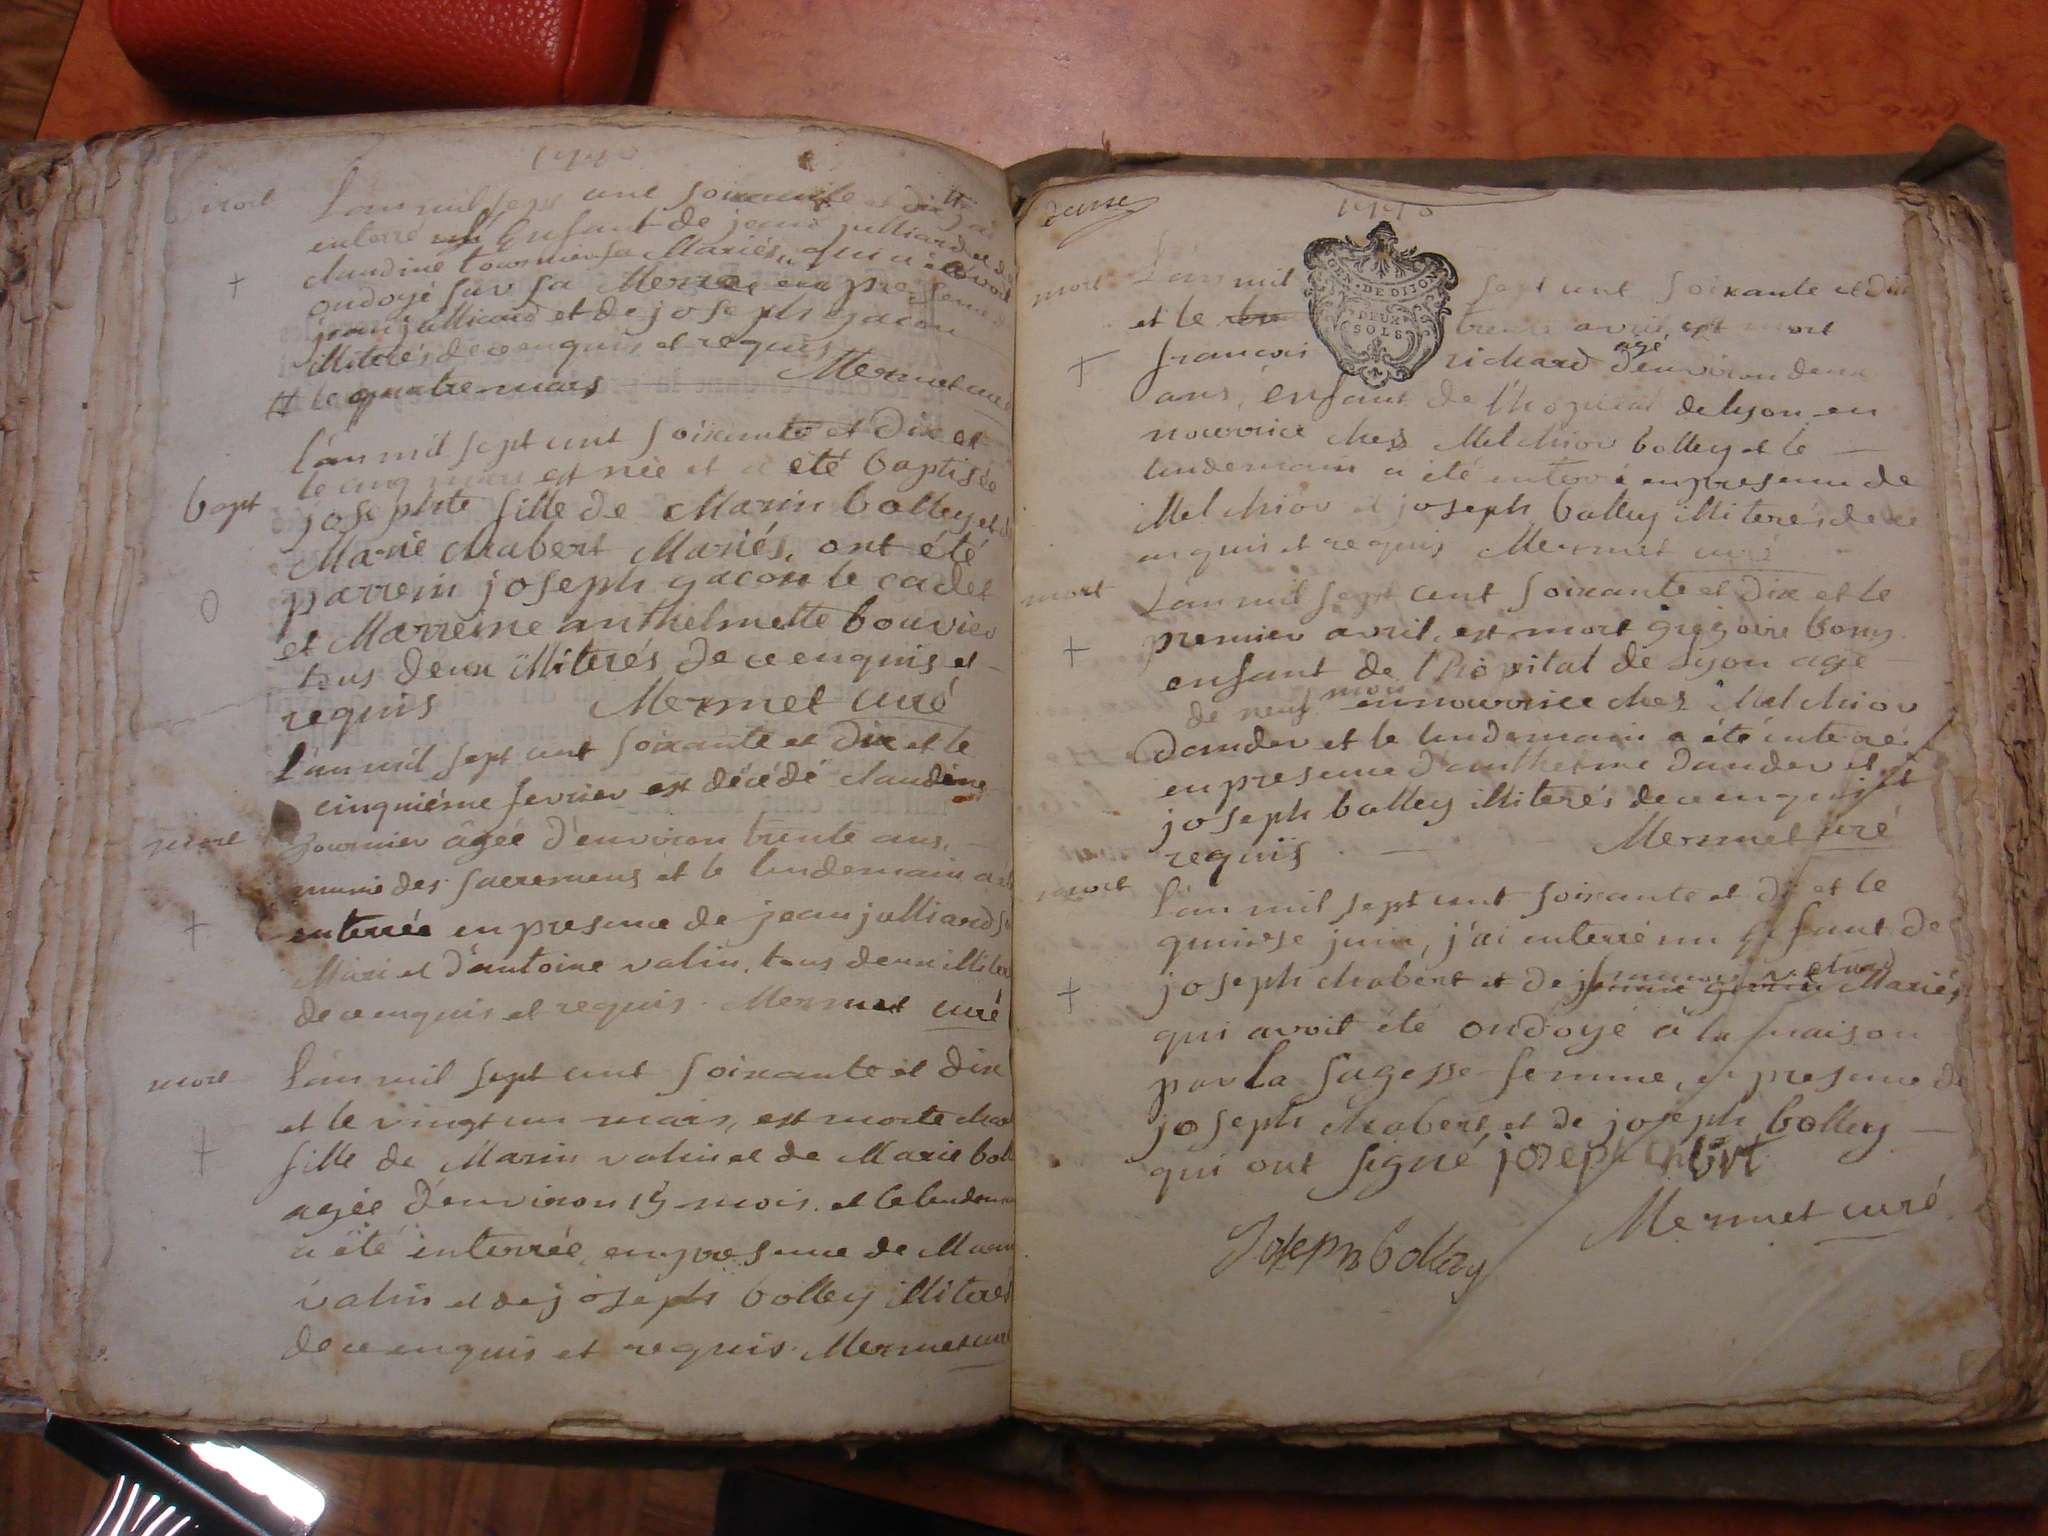 1770
mort
L'an mil sept cent soixante et dix # j'ai
enterré un Enfant de jean julliard et de
claudine tournier sa Mariés, qui avoit
ondoyé sur sa Merre en presence
jean julliard et de joseph gacon
illiterés de ce enquis et requis
# le quatre mars Mermet curé
L'an mil sept cent soixante et dix et
le cinq mars est née et a été baptisée
bapt
josephte fille de Marin bolley et de
Marie chabert Mariés, ont été
parrein joseph gacon le cadet
et Marreine anthelmette bouvier
tous deux illiterés de ce enquis et
requis Mermet curé
L'an mil sept cent soixante et dix et le
cinquiéme fevrier est décédé claudine
mort
tournier agée d'environ trente ans,
munie des sacremens et le lendemain a été
enterrée en presence de jean julliard
Mari et d'antoine valin, tous deux illiterés
de ce enquis et requis. Mermet curé
mort
L'an mil sept cent soixante et dix
et le vingt un mars, est morte
fille de Marin valin et de Marie boll
agée d'environ 15 mois. et le lendemain
a été enterrée, en presence de Marin
valin et de joseph bolley illiterés
de ce enquis et requis. Mermet curé
1770
mort
L'an mil sept cent soixante et dix
GEN. DE DIJON
DEUX
SOLS
et le avril, est mort
françois richard agé d'environ deux
ans, enfant de l'hopital de lyon en
nourrice chess Melchior bolley et le
lendemain a été enterré en presence de
Melchior et joseph bolley illiterés de ce
enquis et requis Mermet curé
mort
L'an mil sept cent soixante et dix et le
premier avril, est mort gregoire bony
enfant de l'hopital de Lyon age
de neuf mois en nourrice ches Melchior
dander et le lendemain a été enterré
en presence d'anthelme dander et
joseph bolley illiterés de ce enquis et
requis Mermet curé
mort
L'an mil sept cent soixante et dix et le
quinse juin, j'ai enterré un enfant de
joseph chabert et de Mariés,
qui avoit été ondoyé à la maison
par la sagesse-femme, en presence de
joseph chabert, et de joseph bolley
qui ont signé joseph
Joseph bolley Mermet curé